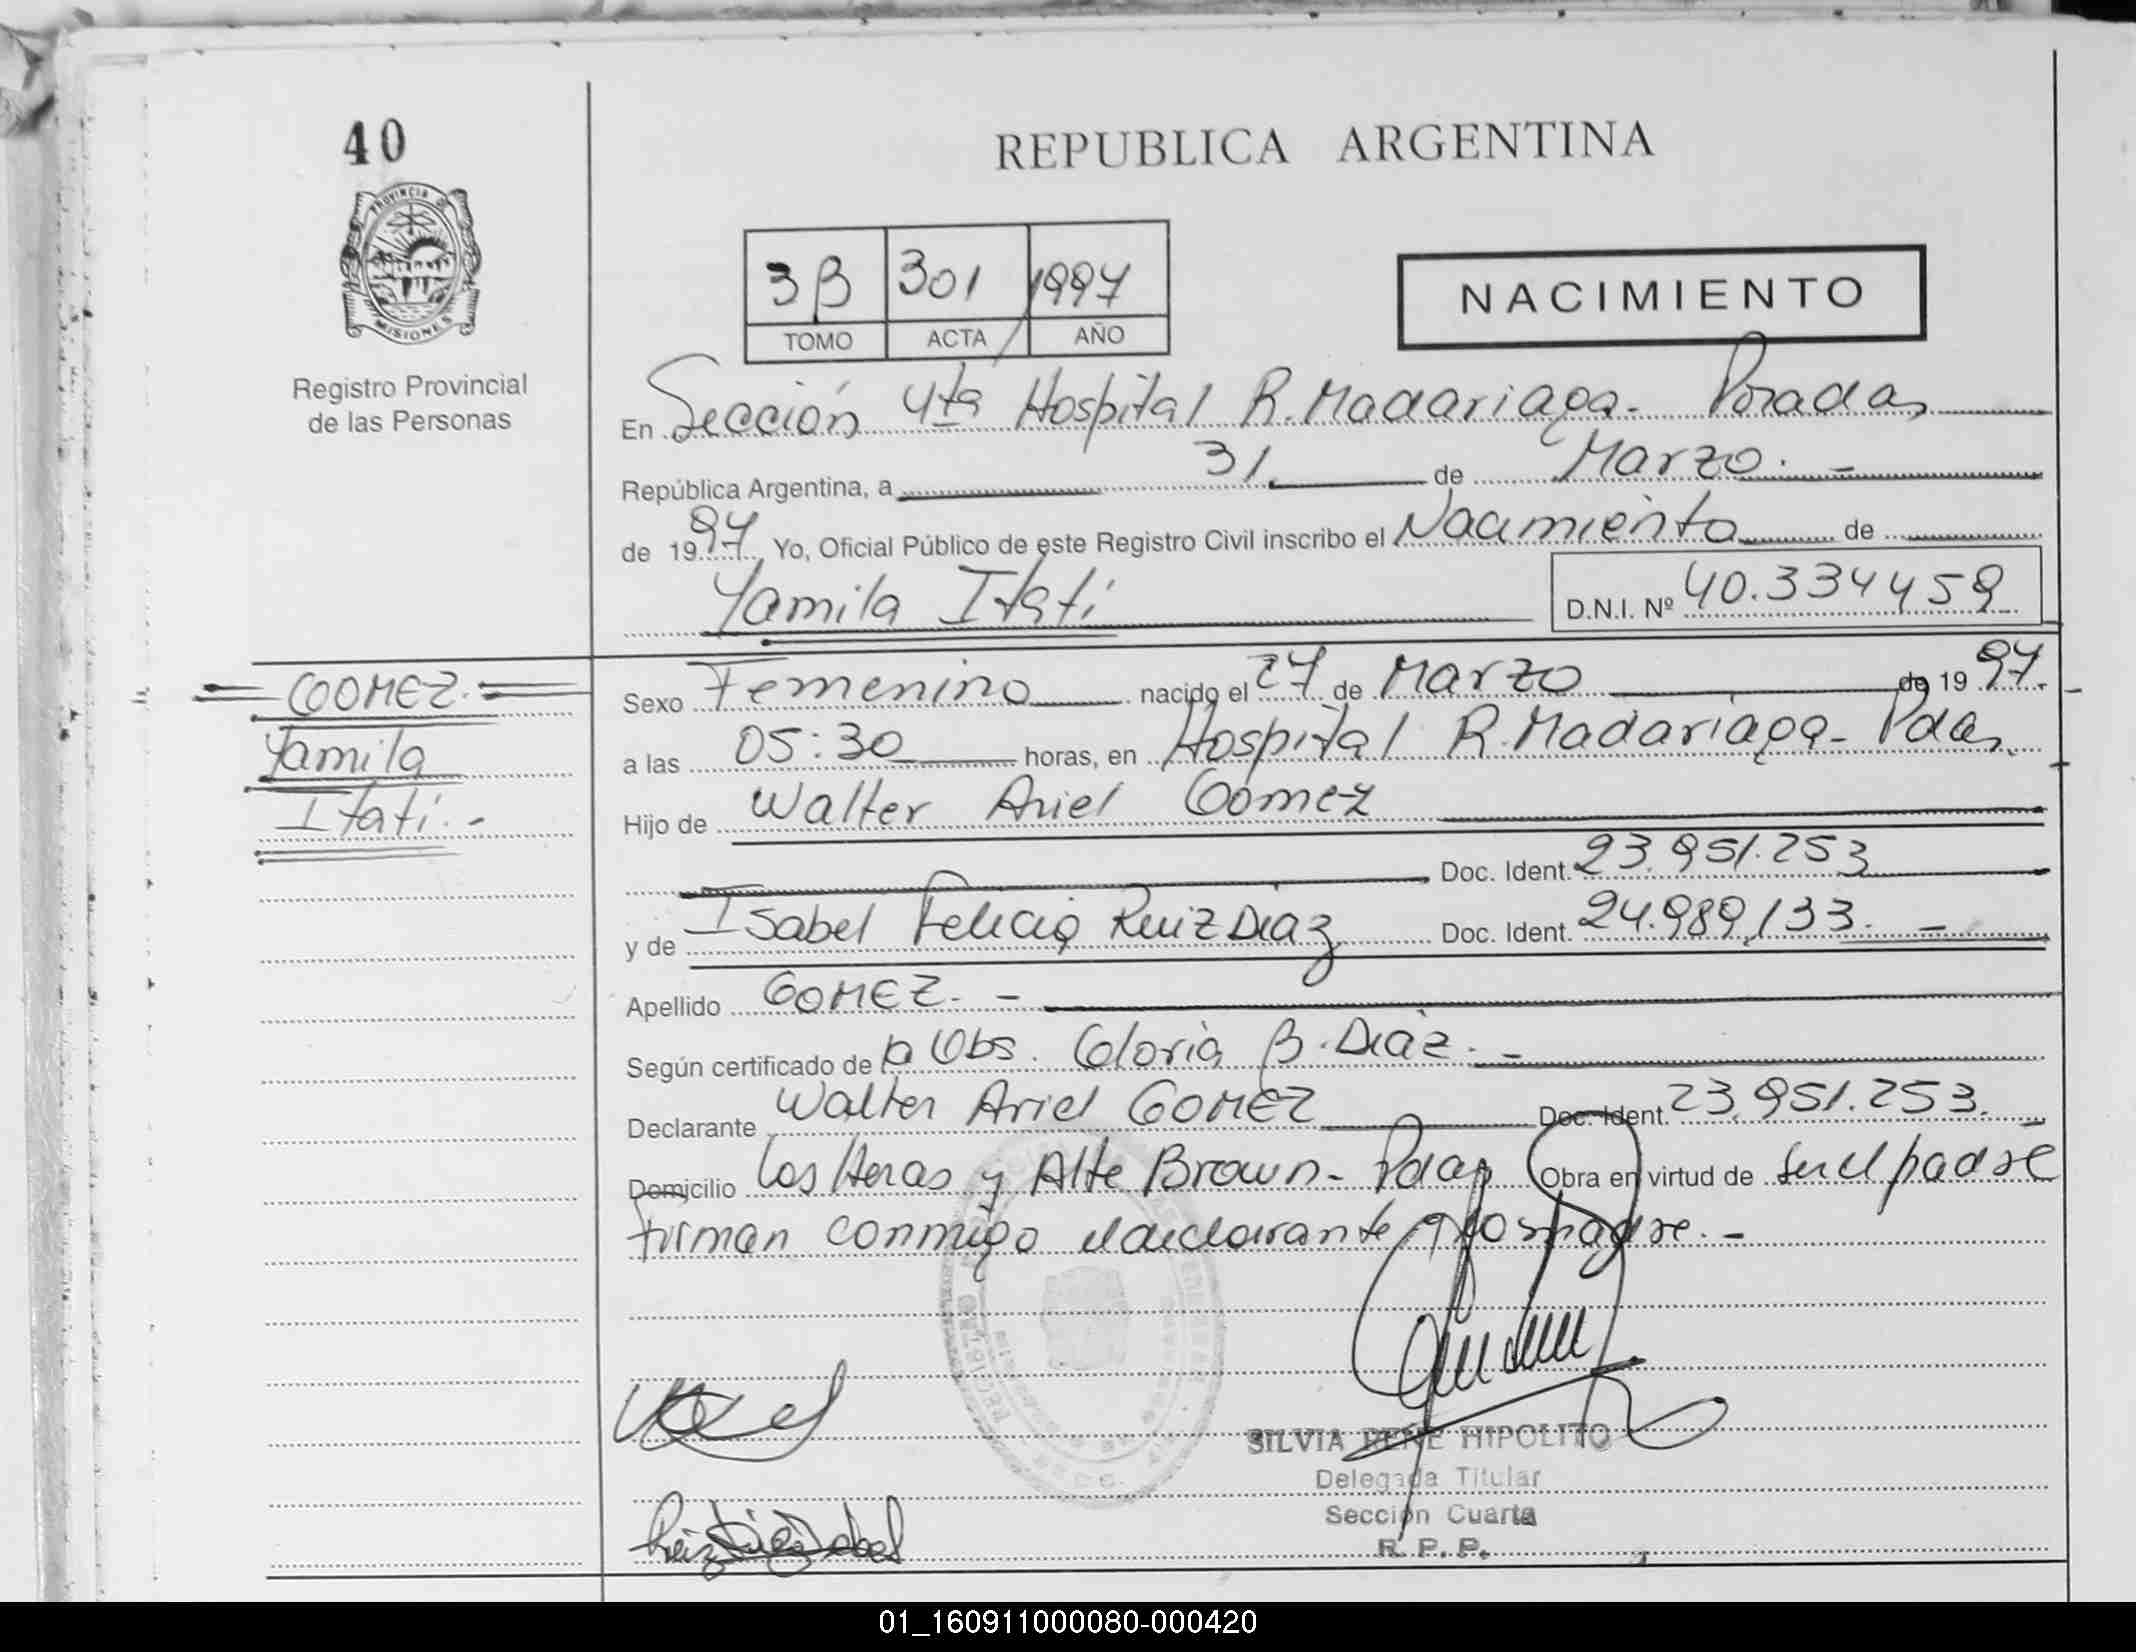 40
PROVINCIA D
MISIONES
Registro Provincial
de las Personas
REPUBLICA ARGENTINA
3B 301 1997
TOMO ACTA AÑO
NACIMIENTO
En Sección 4ta Hospital R. Madariaga - Posadas
República Argentina, a 31 de Marzo. -
de 1997 Yo, Oficial Público de este Registro Civil inscribo el Nacimiento de
Yamila Itatí D.N.I. Nº 40.334459
GOMEZ.
Yamila
Itatí. -
Sexo Femenino nacido el 27 de Marzo de 1997.
a las 05:30 horas, en Hospital R. Madariaga - Pdas.
Hijo de Walter Ariel Gomez
Doc. Ident. 23.951.253
y de Isabel Felicia Ruiz Diaz Doc. Ident. 24.989.133. -
Apellido GOMEZ. -
Según certificado de la Obs. Gloria B. Diaz. -
Declarante Walter Ariel GOMEZ Doc. Ident. 23.951.253.
Domicilio Las Heras y Alte Brown - Pdas Obra en virtud de ser el padre
firman conmigo el declarante y la madre. -
SILVIA RENE HIPOLITO
Delegada Titular
Sección Cuarta
R. P. P.
Ruiz Diaz Isabel
01_160911000080-000420